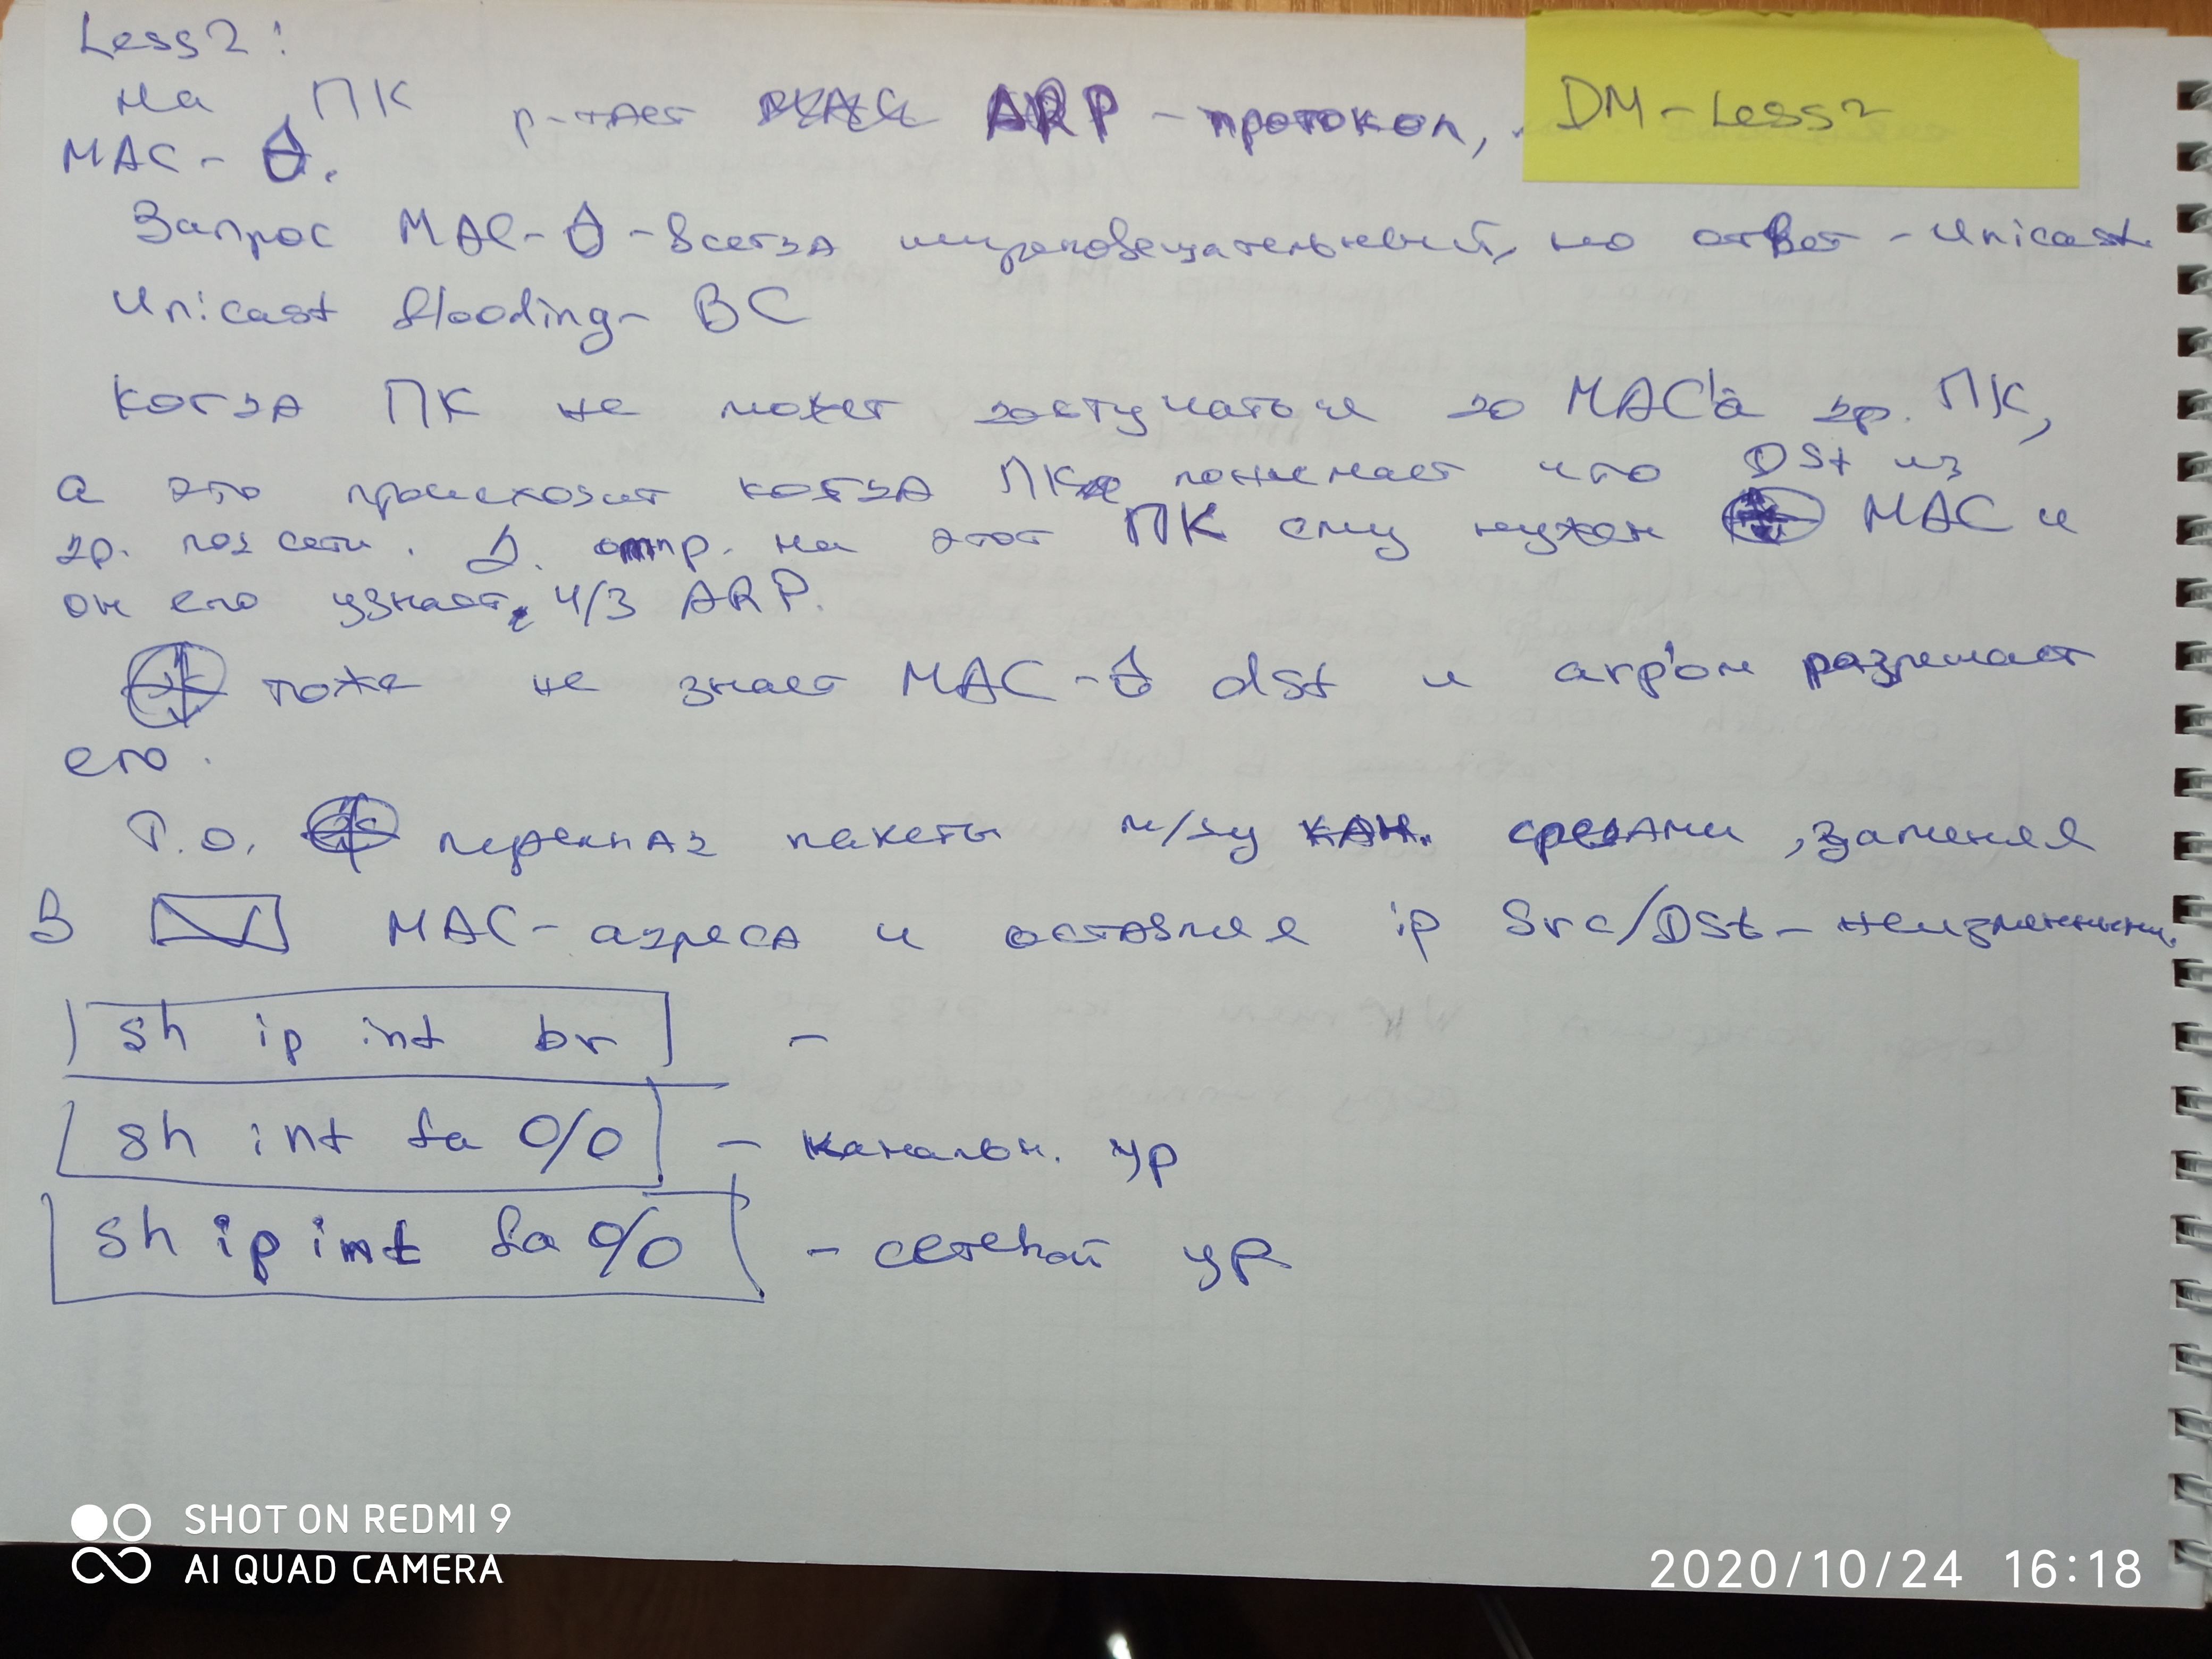 Less2:
DM-Less2
На ПК р-тает ARP-протокол,
МАС-
Запрос МАС- - всегда широковещательный, но ответ - Unicast.
Unicast flooding - BC
Когда ПК не может достучаться до МАС'а др. ПК,
а это происходит когда ПК понимает что Dst из
др. подсети. Д. отпр. на этот ПК ему нужен МАС и
он его узнает ч/з ARP.
тоже не знает МАС- dst и arp'ом
его.
Т.о. пакеты м/ду кан. средами, заменяя
в МАС-адреса и оставляя ip Src/Dst - неизменными.
sh ip int br -
sh int fa 0/0 - канальн. ур
sh ip int fa 0/0 - сетевой ур
SHOT ON REDMI 9
AI QUAD CAMERA
2020/10/24 16:18